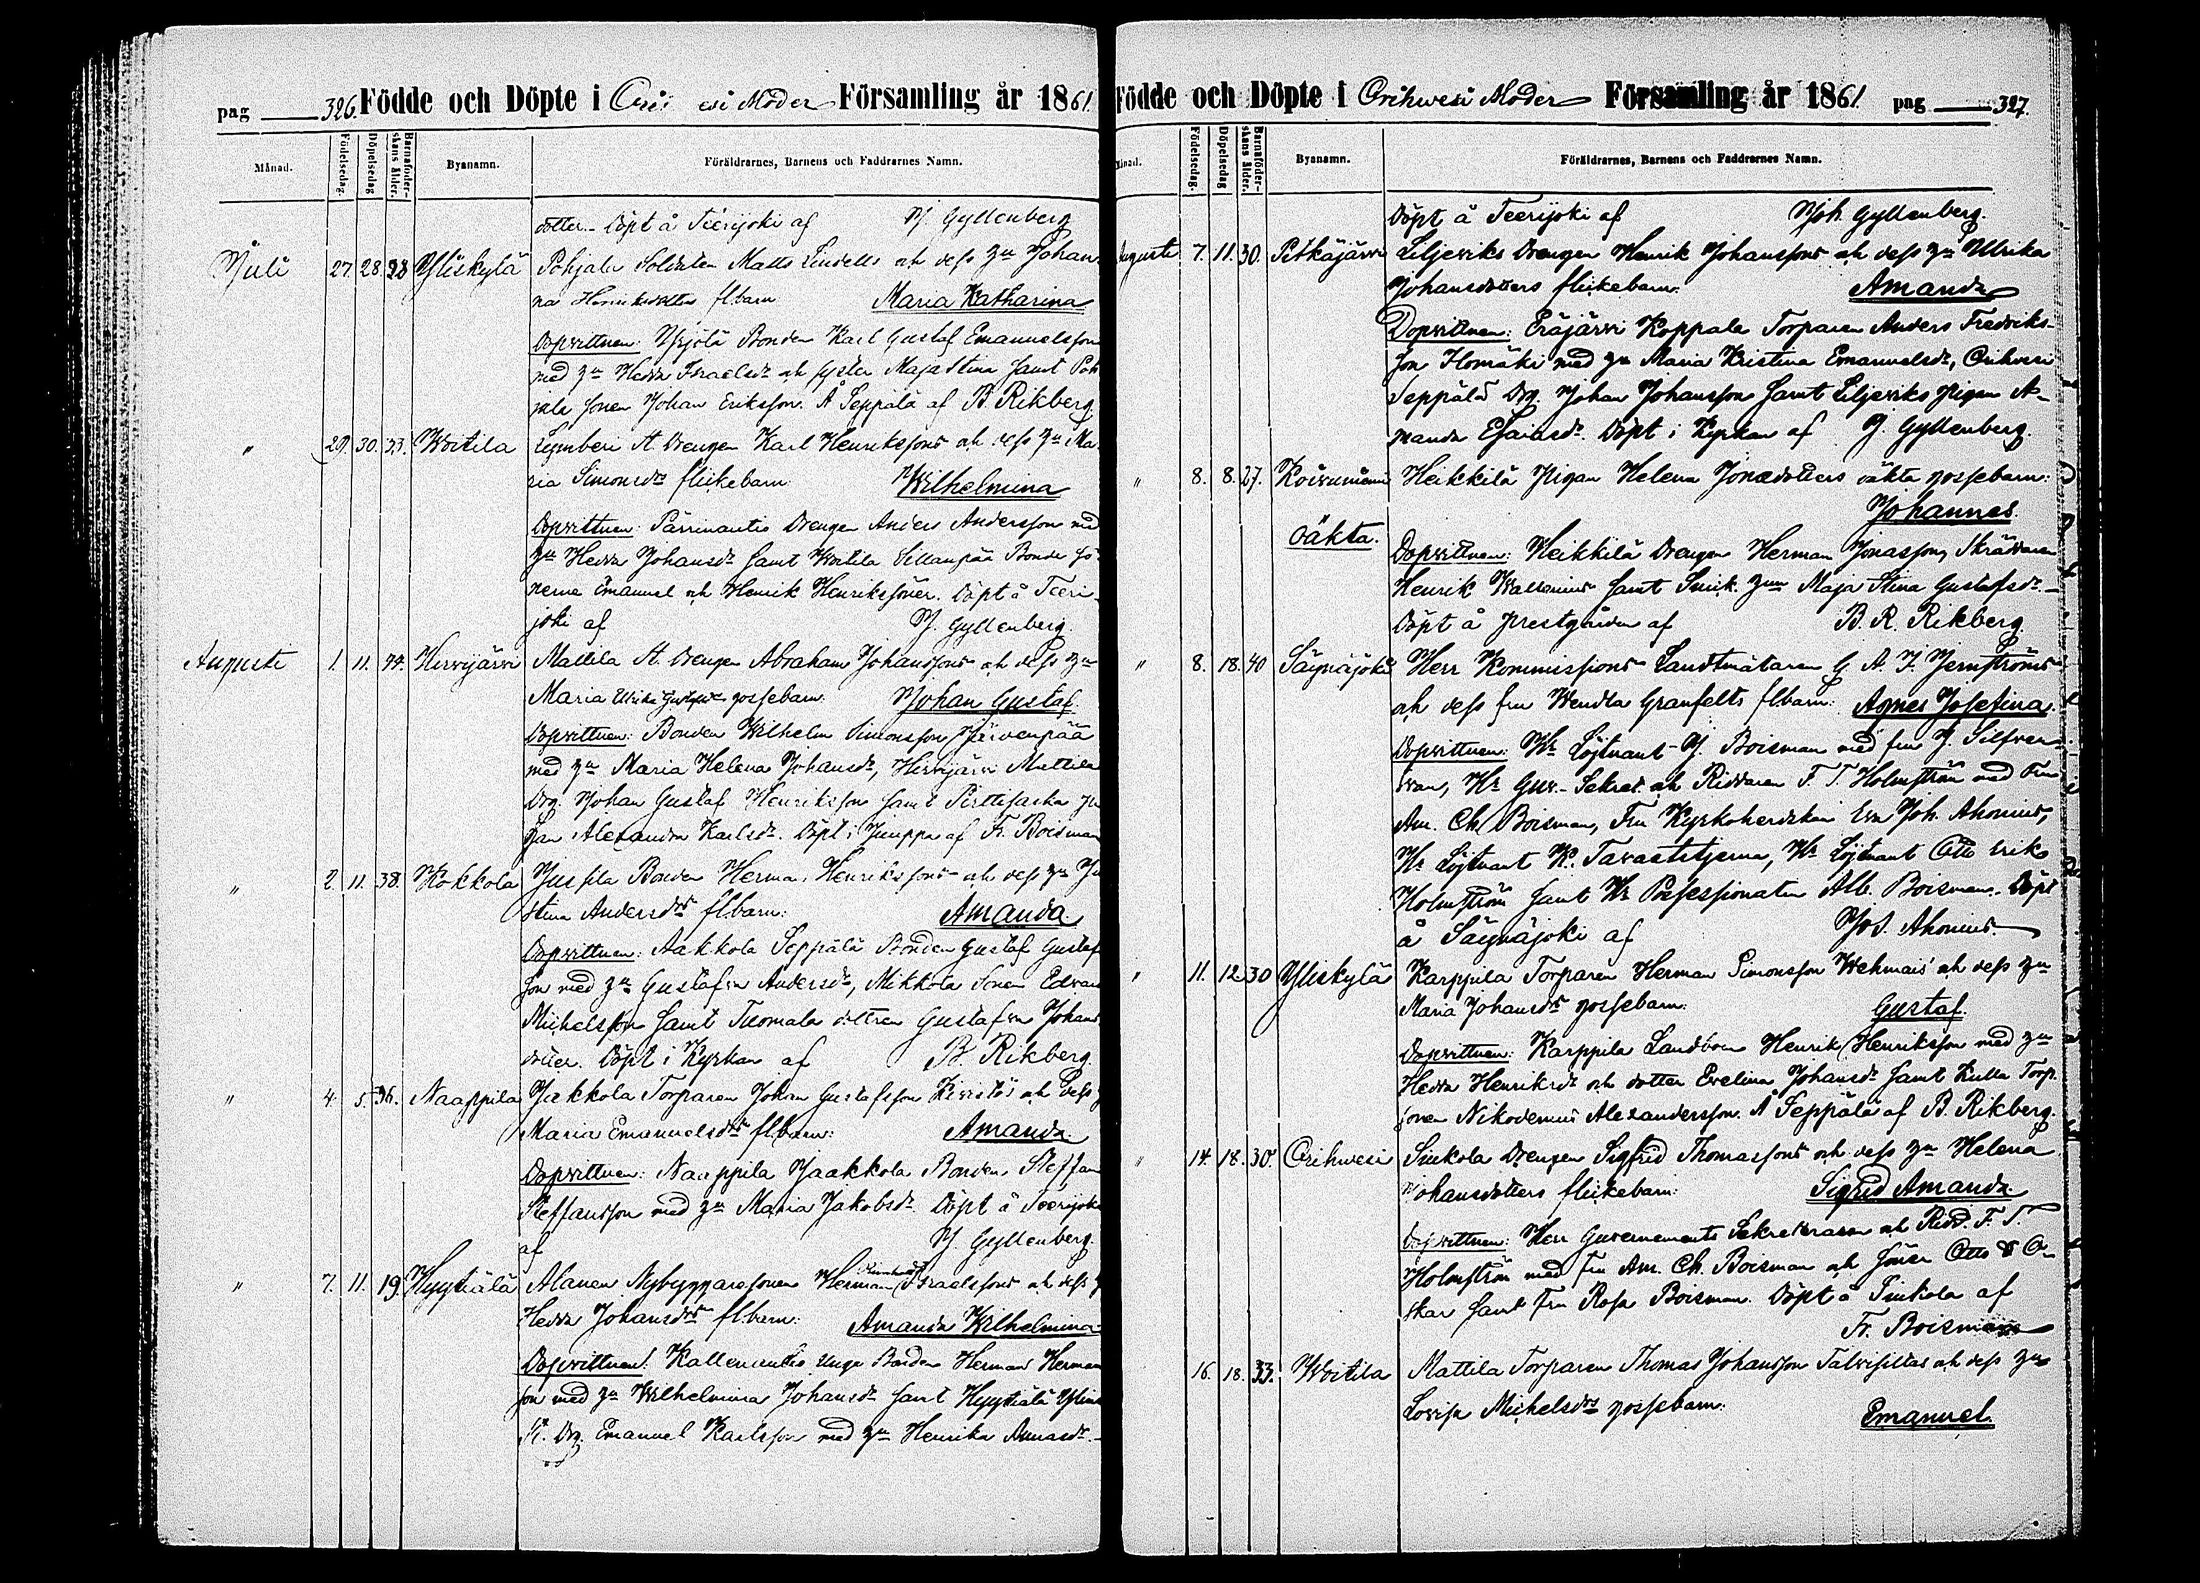 pag 326. Födde och Döpte i Ori esi Moder Församling år 1861.
Månad. Födelsedag. Döpelsedag Barnaföderskans ålder. Bynamn. Föräldrarnes, Barnens och Faddrarnes Namn.
dotter. Döpt å Teerijoki af J Gyllenberg
Juli 27. 28. Yliskylä Pohjala Soldaten Matts Lindells och dess hu Johan
na Henriksdotter flbarn Maria Katharina
Dopvittnen: Yrjölä Bonden Karl Gustaf Emanuelsson
med hu Hedda Israelsdr och syster Maja Stina samt Poh
jala sonen Johan Eriksson. Å Seppälä af B. Rikberg.
" 29. 30. 33. Woitila A. Drengen Karl Henrikssons och dess hu Ma
ria Simonsdrs flickebarn Wilhelmina
Dopvittnen: Drengen Anders Andersson med
hu Hedda Johansdr samt Woitila Sillanpää Bonde sö
nerne Emanuel och Henrik Henrikssöner. Döpt å Teeri-
joki af J. Gyllenberg.
Augusti 1. 11. 44. Hirvijärvi Mattila A. Drengen Abraham Johanssons och dess hu
Maria Ulrika gossebarn. Johan Gustaf.
Dopvittnen: Bonden Wilhelm Simonsson Järvenpää
med hu Maria Helena Johansdr, Hirvijärvi Mattila
Drg. Johan Gustaf Henriksson samt
Alexandra Karlsdr. Döpt i af Fr. Boisman
" 2. 11. 38. Kokkola Jussila Bonden Herman Henrikssons och dess hu Ju
stina Andersdrs flbarn: Amanda.
Dopvittnen: Aakkola Seppälä Bonden Gustaf Gustaf
son med hu Gustafva Andersdr, Mikkola Sonen Edvard
Michelsson samt Tuomala dottren Gustafva Johans
dotter. Döpt i Kyrkan af B. Rikberg
" 4. 5. 36. Naappila Jakkola Torparen Johan Gustafsson Kivistös och dess
Maria Emanuelsdrs flbarn: Amanda.
Dopvittnen: Naappila Jaakkola Bonden Steffan
Steffansson med hu Maria Jakobsdr. Döpt å Teerijoki
af J. Gyllenberg.
" 7. 11. 19. Hyytiälä Alanen Nybyggaresonen Herman Israelssons och dess
Hedda Johansdrs flbarn: Amanda Wilhelmina
Dopvittnen: Unge Bonden Herman Herman
son med hu Wilhelmina Johansdr samt Hyytiälä
Drg. Emanuel Karlsson med hu Henrika
Födde och Döpte i Orihwesi Moder Församling år 1861. pag 327.
Månad. Födelsedag. Döpelsedag Barnaföderskans ålder. Bynamn. Föräldrarnes, Barnens och Faddrarnes Namn.
Döpt å Teerijoki af Joh. Gyllenberg.
Augusti 7. 11. 30. Pitkäjärvi Liljeviks Drengen Henrik Johanssons och dess hu Ulrika
Johansdotters flickebarn. Amanda
Dopvittnen: Eräjärvi Koppala Torparen Anders Fredriks-
son Ilomäki med hu Maria Kristina Emanuelsdr, Orihwesi
Seppälä Drg. Johan Johansson samt Liljeviks Pigan A-
manda Esaiasdr. Döpt i Kyrkan af J. Gyllenberg.
" 8. 8. 27. Koivuniemi Heikkilä Pigan Helena Jonædotters oäkta gossebarn:
Johannes.
oäkta.
Dopvittnen: Heikkilä Drengen Herman Jonasson, Skräddaren
Henrik Wallenius samt hun Maja Stina Gustafsdr.
Döpt å prestgården af B. R. Rikberg.
" 8. 18. 40 Säynäjoki Herr Kommissions Landtmätaren G. A. F. Jernströms
och dess fru Wendla Granfelts flbarn: Agnes Josefina.
Dopvittnen: Hr Löjtnant J. Boisman med fru J. Silfver-
svan, Hr Guv. Sekret. och Riddaren F. T. Holmström med Fru
Am. Ch. Boisman, Fru Kyrkoherdskan Eva Joh. Ahonius,
Hr Löjtnant K. Tavaststjerna, Hr Löjtnant Otto Erik
Holmström samt Hr Possessionaten Alb. Boisman. Döpt
å Säynäjoki af Jos. Ahonius.
" 11. 12 30 Yliskylä Karppila Torparen Herman Simonsson Wehmais' och dess hu
Maria Johansdrs gossebarn. Gustaf.
Dopvittnen: Karppila Landbon Henrik Henriksson med hu
Hedda Henriksdr och dotter Evelina Johansdr samt Kulla Torp.
sonen Nikodemus Alexandersson. Å Seppälä af B. Rikberg.
" 14. 18. 30. Orihwesi Sinkola Drengen Sigfrid Thomassons och dess hu Helena
Johansdotters flickebarn: Sigrid Amanda
Dopvittnen: Herr Guvernements Sekreteraren och Ridd. F. T.
Holmström med fru Am. Ch. Boisman och söner Otto & O-
skar samt Fru Rosa Boisman. Döpt å Sinkola af
Fr. Boisman
16. 18. 33. Woitila Mattila Torparen Thomas Johansson Talvisillas och dess hu
Lovisa Michelsdrs gossebarn: Emanuel.